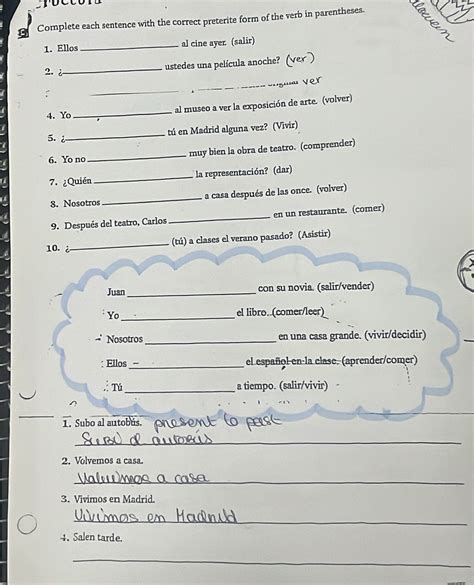 Complete each sentence with the correct preterite form of the verb in parentheses.
1. Ellos ____________ al cine ayer. (salir)
2. ¿____________ ustedes una película anoche? (ver)
ver
4. Yo ____________ al museo a ver la exposición de arte. (volver)
5. ¿____________ tú en Madrid alguna vez? (Vivir)
6. Yo no ____________ muy bien la obra de teatro. (comprender)
7. ¿Quién ____________ la representación? (dar)
8. Nosotros ____________ a casa después de las once. (volver)
9. Después del teatro, Carlos ____________ en un restaurante. (comer)
10. ¿____________ (tú) a clases el verano pasado? (Asistir)
Juan ____________ con su novia. (salir/vender)
Yo ____________ el libro. (comer/leer)
Nosotros ____________ en una casa grande. (vivir/decidir)
Ellos ____________ el español en la clase. (aprender/comer)
Tú ____________ a tiempo. (salir/vivir)
1. Subo al autobús. present to past
Subí al autobús
2. Volvemos a casa.
a casa
3. Vivimos en Madrid.
Vivimos en Madrid
4. Salen tarde.